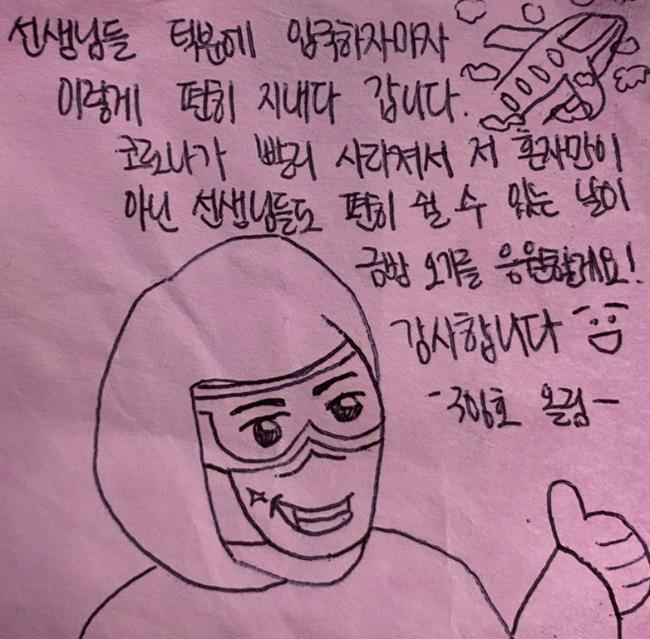 선생님들 덕분에 입국하자마자
이렇게 편히 지내다 갑니다.
코로나가 빨리 사라져서 저 혼자만이
아닌 선생님들도 편히 쉴 수 있는 날이
금방 오기를 응원할게요!
감사합니다
-306호 올림-